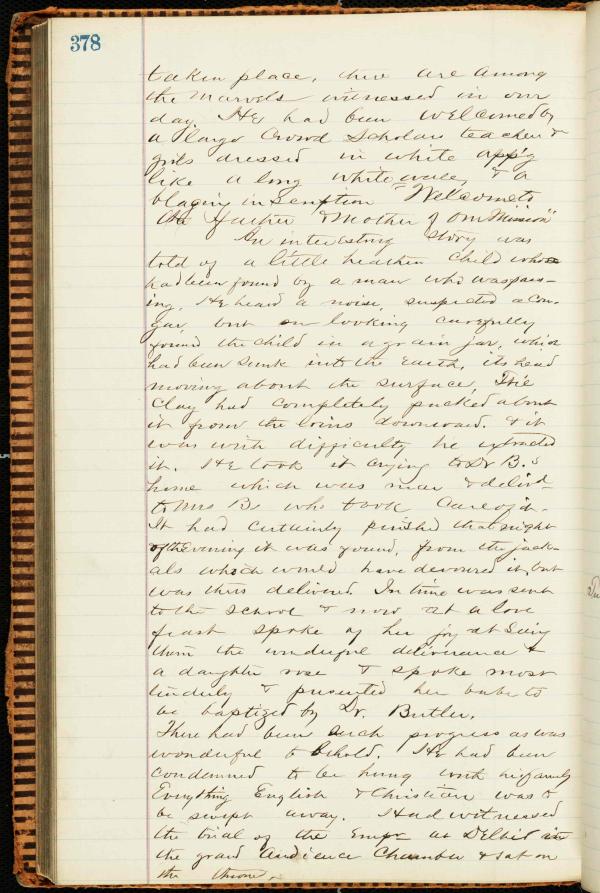 378
taken place, there are among
the marvels witnessed in our
day. He had been welcomed by
a large Crowd Scholars teachers &
girls dressed in white app'g
like a long white wave, & a
blazing inscription "Welcome to
the Father & Mother of our Mission"
An interesting story was
told of a little heathen child who
had been found by a man who was pass-
ing. He heard a noise, suspected a Cou-
gar, but on looking carefully
found the child in a grain jar, which
had been sunk into the earth, its head
moving about the surface. The
Clay had completely packed about
it from the loins downward. & it
was with difficulty he extracted
it. He took it crying to Dr B.s
home which was near & deliv'd
to Mrs B. who took care of it.
It had certainly perished that night
of the evening it was found, from the jack-
als which would have devoured it, but
was thus delivered. In time was sent
to the school & now at a love
feast spoke of her joy at seeing
them the wonderful deliverance &
a daughter rose & spoke most
tenderly & presented her babe to
be baptized by Dr. Butler.
There had been such progress as was
wonderful to behold. He had been
condemned to be hung with his family
Everything English & Christian was to
be swept away. Had witnessed
the trial of the Emp'r at Delhi in
the grand Audience Chamber & sat on
the throne.